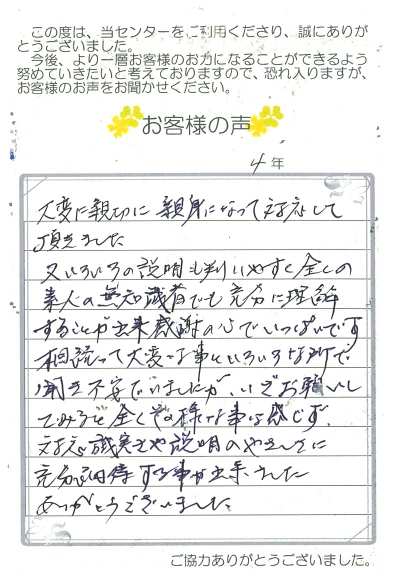 この度は、当センターをご利用くださり、誠にありが
とうございました。
今後、より一層お客様のお力になることができるよう
努めていきたいと考えておりますので、恐れ入りますが、
お客様のお声をお聞かせください。
お客様の声
4年
大変に親切に親身になって対応して
頂きました
又いろいろの説明も判りやすく全くの
素人の無知識者でも充分に理解
することが出来感謝の心でいっぱいです
相続って大変な事といろいろな所で
聞き不安でいましたが、いざお願いし
てみると全くその様な事は感じず、
対応の誠実さや説明のやさしさに
充分納得する事が出来ました
ありがとうございました。
ご協力ありがとうございました。